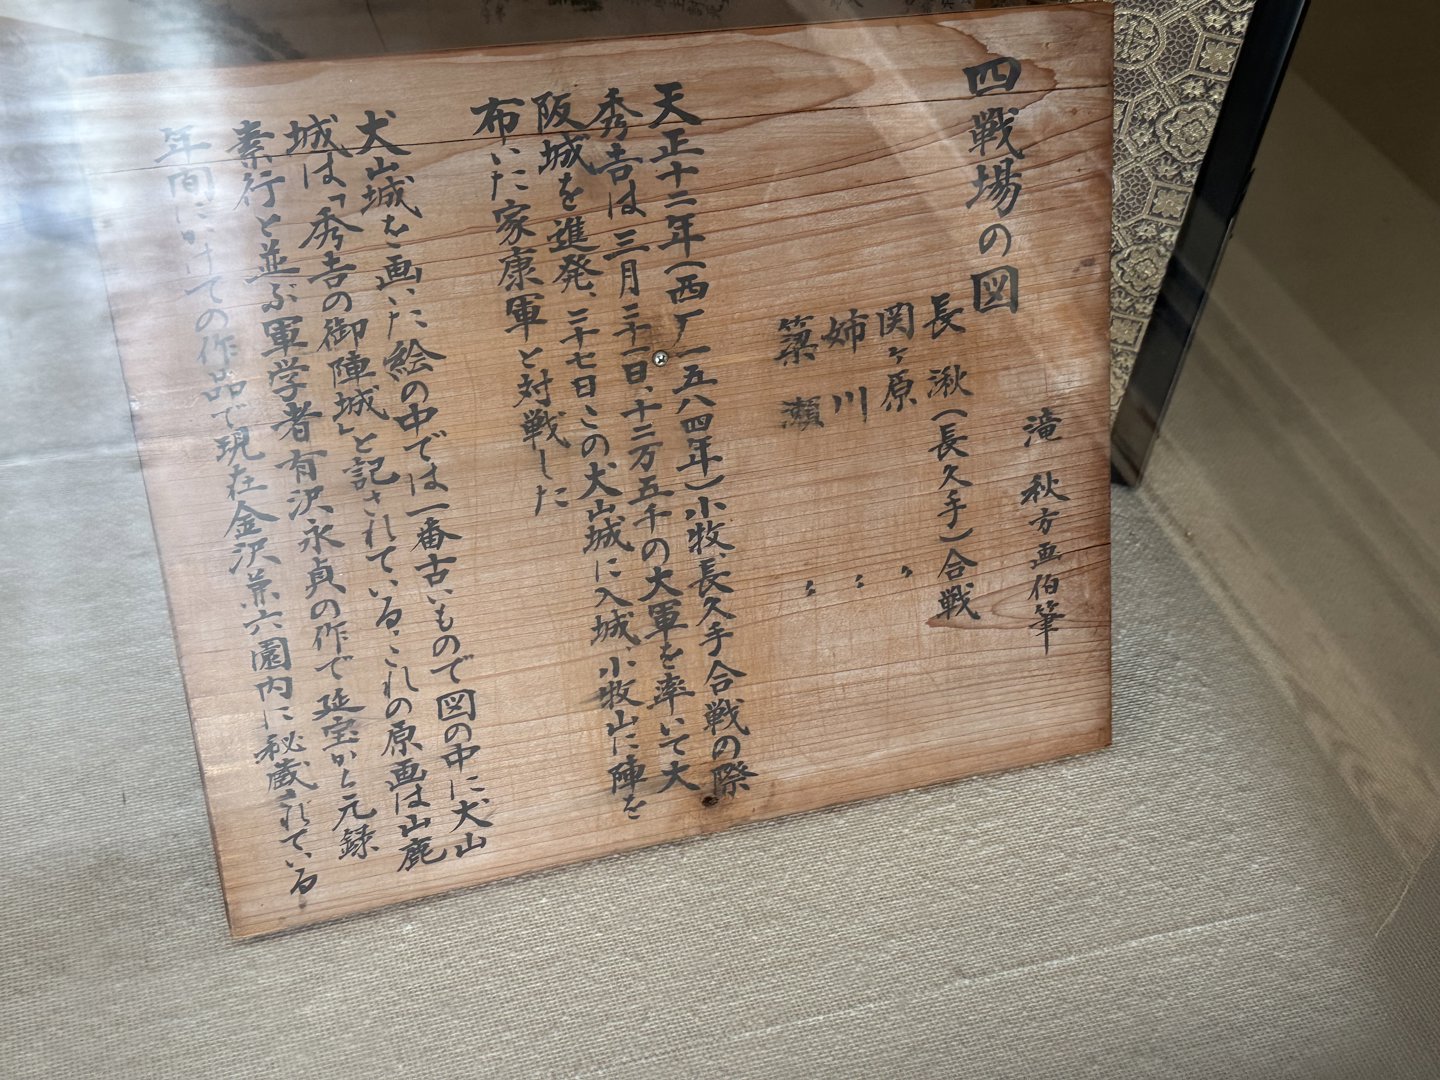 四戦場の図
滝 秋方画伯筆
長湫(長久手)合戦
関ヶ原 〃
姉川 〃
簗瀬 〃
天正十二年(西ﾃ一五八四年)小牧、長久手合戦の際
秀吉は三月二十一日、十二万五千の大軍を率いて大
阪城を進発、二十七日この犬山城に入城、小牧山に陣を
布いた家康軍と対戦した
犬山城を画いた絵の中では一番古いもので図の中に犬山
城は「秀吉の御陣城」と記されている、これの原画は山鹿
素行と並ぶ軍学者有沢永貞の作で延宝から元録
年間にかけての作品で現在金沢兼六園内に秘蔵されている